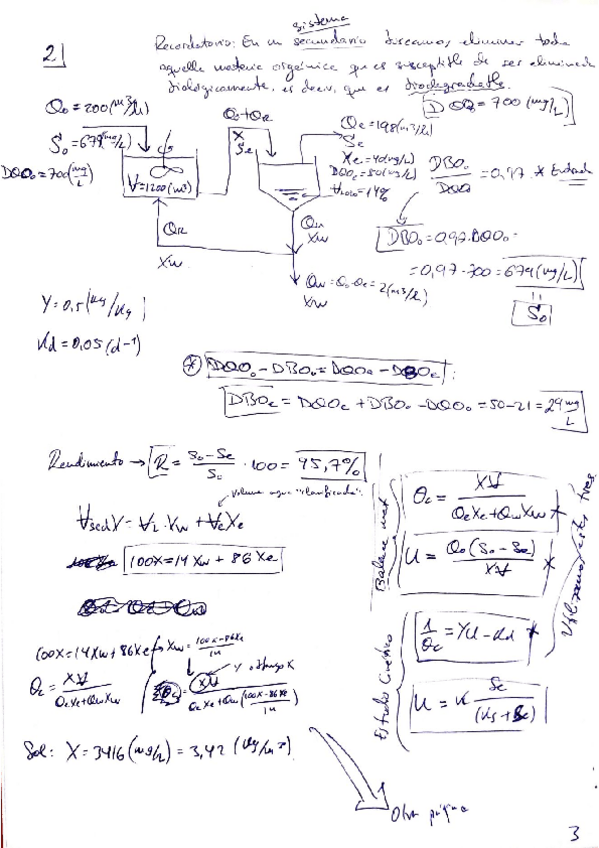 2|
sistema
Recordatorio: En un secundario buscamos eliminar toda
aquella materia orgánica que es susceptible de ser eliminada
biológicamente, es decir, que es biodegradable.
Q₀ = 200 (m³/h)
S₀ = 679 (mg/L)
DQO₀ = 700 (mg/L)
V = 1200 (m³)
Q₀ + QR
X
Se
Qe = 198 (m³/h)
Se
Xe = 40 (mg/L)
DQOe = 50 (mg/L)
= 14%
DQO₀ = 700 (mg/L)
DBO₀/DQO = 0,97 * Entrada
DBO₀ = 0,97 · DQO₀ =
= 0,97 · 700 = 679 (mg/L)
S₀
QR
Xw
Xw
Qw = Q₀ - Qe = 2 (m³/h)
Xw
Y = 0,5 (kg/kg)
Kd = 0,05 (d⁻¹)
* DQO₀ - DBO₀ = DQOe - DBOe :
DBOe = DQOe + DBO₀ - DQO₀ = 50 - 21 = 29 mg/L
Rendimiento → R = (S₀ - Se)/S₀ · 100 = 95,7%
volumen agua "clarificada"
+ VeXe
100X = 14Xw + 86Xe
100X = 14Xw + 86Xe → Xw = (100X - 86Xe)/14
Y obtengo X
θc = XV/(QeXe + QwXw)
θc = XV/(QeXe + Qw((100X - 86Xe)/14))
Sol: X = 3416 (mg/L) = 3,42 (kg/m³)
Balance mat
θc = XV/(QeXe + QwXw) *
U = Q₀(S₀ - Se)/XV *
Estudio Cinético
1/θc = YU - Kd *
U = K Se/(Ks + Se)
Utilizamos estas tres
Otra página
3